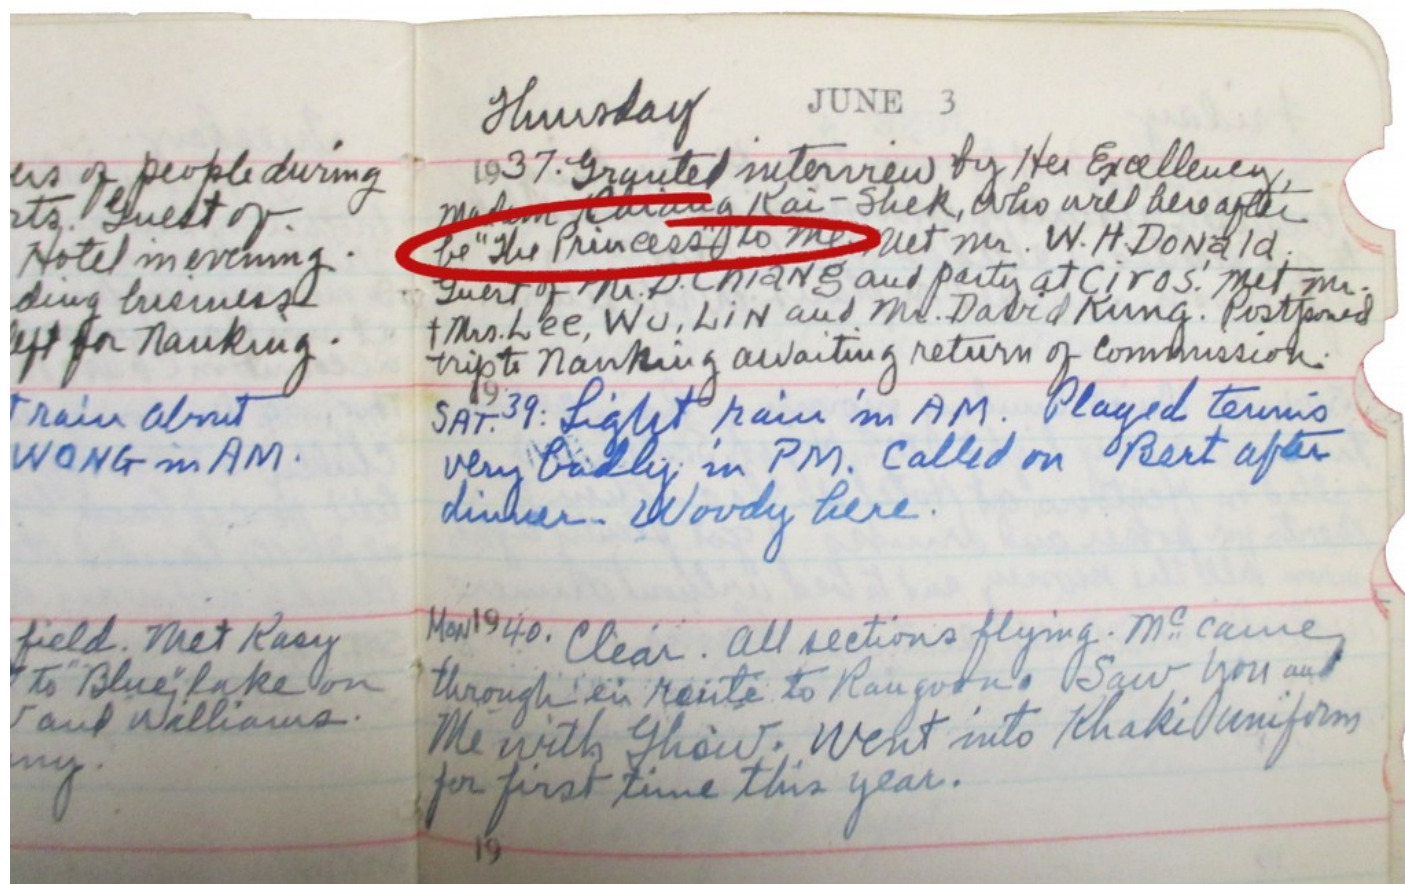 ers of people during
rts. Guest of
Hotel in evening.
ding business
left for Nanking.
train about
WONG in AM.
field. Met Kasy
to "Blue" lake on
and Williams.
ny.
Thursday JUNE 3
1937. Granted interview by Her Excellency,
Madam Chiang Kai-Shek, who will hereafter
be "The Princess" to me. Met Mr. W.H. DONALD.
Guest of Mr. D. CHIANG and party at CIROS'. Met Mr.
+ Mrs. Lee, WU, LIN and Mr. David Kung. Postponed
trip to Nanking awaiting return of commission.
19
SAT. 39: Light rain in AM. Played tennis
very badly in PM. Called on Bert after
dinner. Woody here.
MON 1940. Clear. All sections flying. Mc came
through en route to Rangoon. Saw You and
Me with Ghow. Went into Khaki uniform
for first time this year.
19